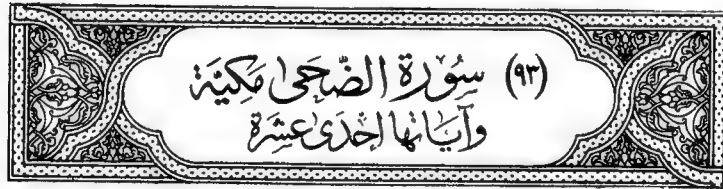 (٩٣) سُورَة الضّحىٰ مَكيَّة
وَآيَاتها احْدَىٰ عَشَرَة